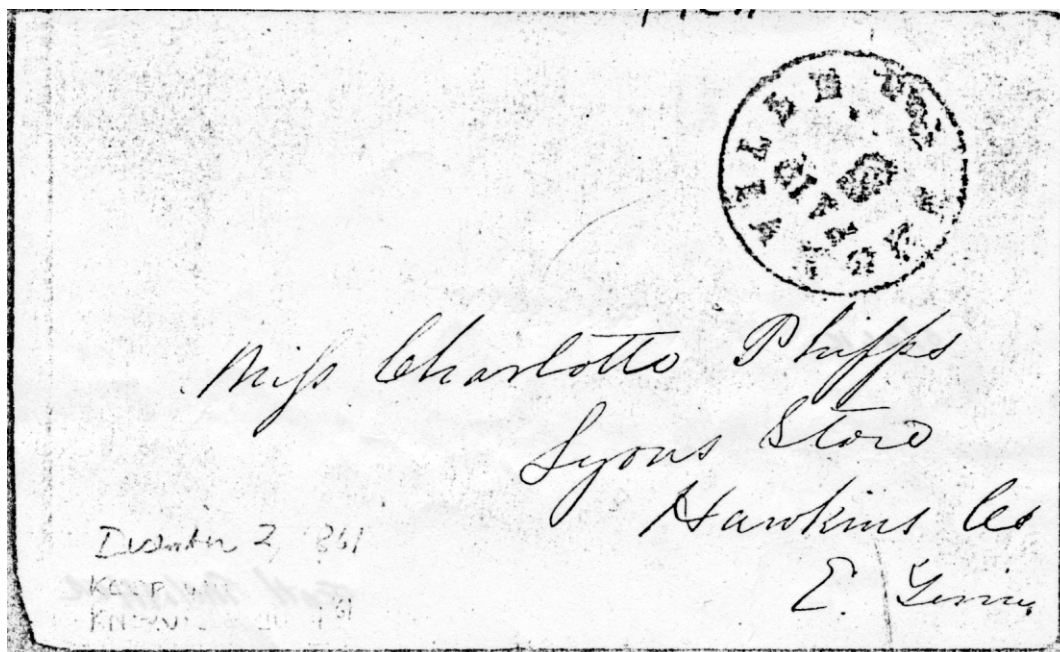 Miss Charlotte Phipps
Lyons Store
Hawkins Co
E. Tenn.
PAID
December 2, 861